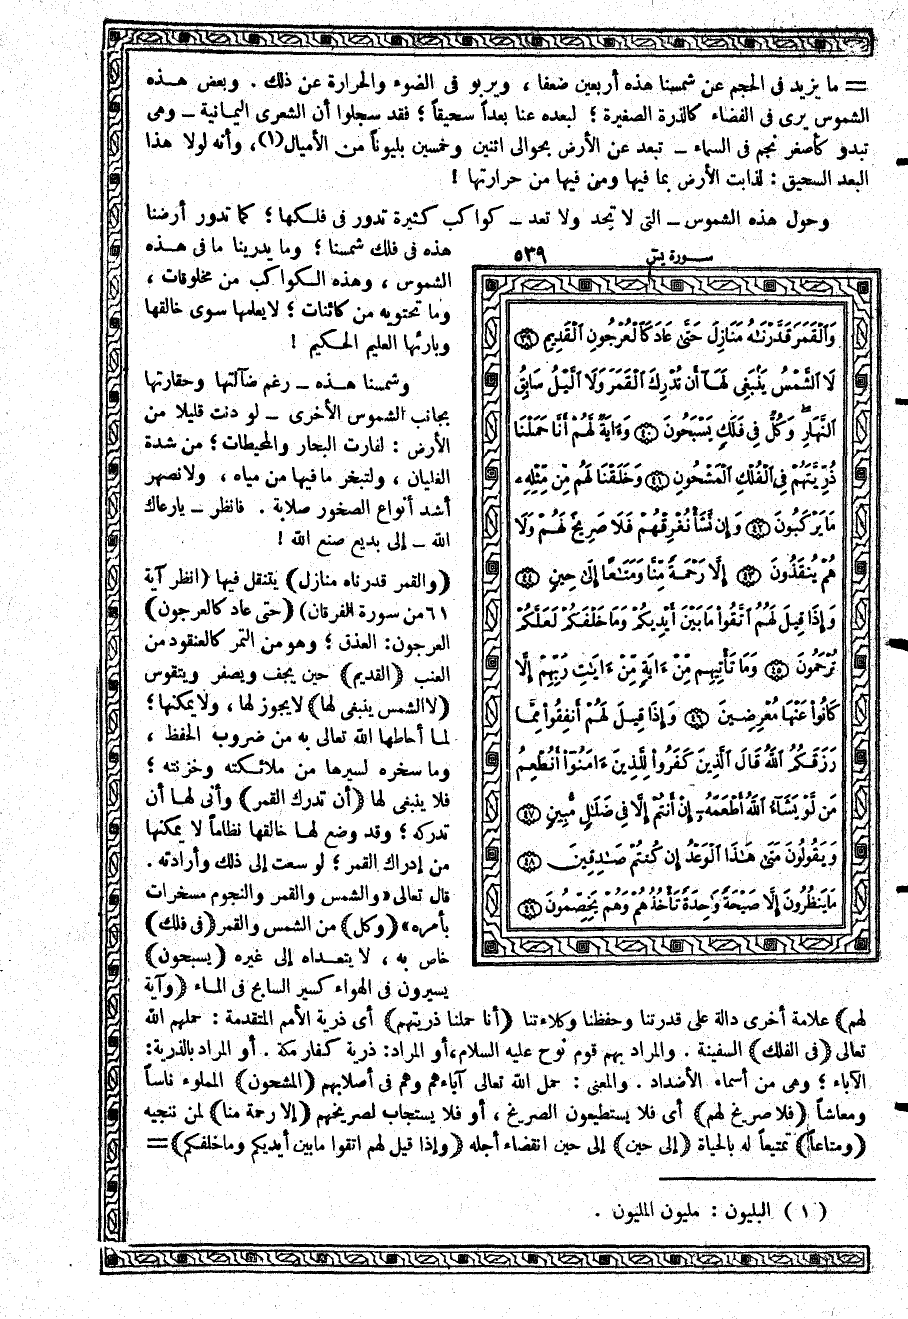 = ما يزيد فى الحجم عن شمسنا هذه أربعين ضعفا ، ويربو فى الضوء والحرارة عن ذلك . وبعض هـذه
الشموس يرى فى الفضاء كالذرة الصغيرة ؛ لبعده عنا بعداً سحيقاً ؛ فقد سجلوا أن الشعرى اليمانية ــ وهى
تبدو كأصغر نجم فى السماء ــ تبعد عن الأرض بحوالى اثنين وخمسين بليوناً من الأميال(١)، وأنه لولا هذا
البعد السحيق : لذابت الأرض بما فيها ومن فيها من حرارتها !
وحول هذه الشموس ــ التى لا تحد ولا تعد ــ كواكب كثيرة تدور فى فلكها ؛ كما تدور أرضنا
هذه فى فلك شمسنا ؛ وما يدرينا ما فى هـذه
الشموس ، وهذه الكواكب من مخلوقات ،
وما تحتويه من كائنات ؛ لا يعلمها سوى خالقها
وبارئها العليم الحكيم !
وشمسنا هـذه ــ رغم ضآلتها وحقارتها
بجانب الشموس الأخرى ــ لو دنت قليلا من
الأرض : لفارت البحار والمحيطات ؛ من شدة
الغليان ، ولتبخر ما فيها من مياه ، ولانصهر
أشد أنواع الصخور صلابة . فانظر ــ يارعاك
الله ــ إلى بديع صنع الله !
(والقمر قدرناه منازل) يتنقل فيها (انظر آية
٦١ من سورة الفرقان) (حتى عاد كالعرجون)
العرجون: العذق ؛ وهو من التمر كالعنقود من
العنب (القديم) حين يجف ويصفر ويتقوس
(لا الشمس ينبغى لها) لا يجوز لها ، ولا يمكنها ؛
لما أحاطها الله تعالى به من ضروب الحفظ ،
وما سخره لسيرها من ملائكته وخزنته ؛
فلا ينبغى لها (أن تدرك القمر) وأنى لهـا أن
تدركه ؛ وقد وضع لهـا خالقها نظاماً لا يمكنها
من إدراك القمر ؛ لو سعت إلى ذلك وأرادته .
قال تعالى «والشمس والقمر والنجوم مسخرات
بأمره» (وكل) من الشمس والقمر (فى فلك)
خاص به ، لا يتعـداه إلى غيره (يسبحون)
يسيرون فى الهواء كسير السابح فى المـاء (وآية
سـورة يس ٥٣٩
وَٱلْقَمَرَ قَدَّرْنَٰهُ مَنَازِلَ حَتَّىٰ عَادَ كَٱلْعُرْجُونِ ٱلْقَدِيمِ ٣٩
لَا ٱلشَّمْسُ يَنۢبَغِى لَهَآ أَن تُدْرِكَ ٱلْقَمَرَ وَلَا ٱلَّيْلُ سَابِقُ
ٱلنَّهَارِ ۚ وَكُلٌّ فِى فَلَكٍ يَسْبَحُونَ ٤٠ وَءَايَةٌ لَّهُمْ أَنَّا حَمَلْنَا
ذُرِّيَّتَهُمْ فِى ٱلْفُلْكِ ٱلْمَشْحُونِ ٤١ وَخَلَقْنَا لَهُم مِّن مِّثْلِهِۦ
مَا يَرْكَبُونَ ٤٢ وَإِن نَّشَأْ نُغْرِقْهُمْ فَلَا صَرِيخَ لَهُمْ وَلَا
هُمْ يُنقَذُونَ ٤٣ إِلَّا رَحْمَةً مِّنَّا وَمَتَٰعًا إِلَىٰ حِينٍ ٤٤
وَإِذَا قِيلَ لَهُمُ ٱتَّقُوا۟ مَا بَيْنَ أَيْدِيكُمْ وَمَا خَلْفَكُمْ لَعَلَّكُمْ
تُرْحَمُونَ ٤٥ وَمَا تَأْتِيهِم مِّنْ ءَايَةٍ مِّنْ ءَايَٰتِ رَبِّهِمْ إِلَّا
كَانُوا۟ عَنْهَا مُعْرِضِينَ ٤٦ وَإِذَا قِيلَ لَهُمْ أَنفِقُوا۟ مِمَّا
رَزَقَكُمُ ٱللَّهُ قَالَ ٱلَّذِينَ كَفَرُوا۟ لِلَّذِينَ ءَامَنُوٓا۟ أَنُطْعِمُ
مَن لَّوْ يَشَآءُ ٱللَّهُ أَطْعَمَهُۥٓ إِنْ أَنتُمْ إِلَّا فِى ضَلَٰلٍ مُّبِينٍ ٤٧
وَيَقُولُونَ مَتَىٰ هَٰذَا ٱلْوَعْدُ إِن كُنتُمْ صَٰدِقِينَ ٤٨
مَا يَنظُرُونَ إِلَّا صَيْحَةً وَٰحِدَةً تَأْخُذُهُمْ وَهُمْ يَخِصِّمُونَ ٤٩
لهم) علامة أخرى دالة على قدرتنا وحفظنا وكلاءتنا (أنا حملنا ذريتهم) أى ذرية الأمم المتقدمة : حملهم الله
تعالى (فى الفلك) السفينة . والمراد بهم قوم نوح عليه السلام، أو المراد: ذرية كفار مكة . أو المراد بالذرية:
الآباء ؛ وهى من أسماء الأضداد . والمعنى : حمل الله تعالى آباءهم وهم فى أصلابهم (المشحون) المملوء ناساً
ومعاشاً (فلا صريخ لهم) أى فلا يستطيعون الصريخ ، أو فلا يستجاب لصريخهم (إلا رحمة منا) لمن ننجيه
(ومتاعاً) تمتيعاً له بالحياة (إلى حين) إلى حين انقضاء أجله (وإذا قيل لهم اتقوا مابين أيديكم وماخلفكم)=
(١) البليون : مليون المليون .